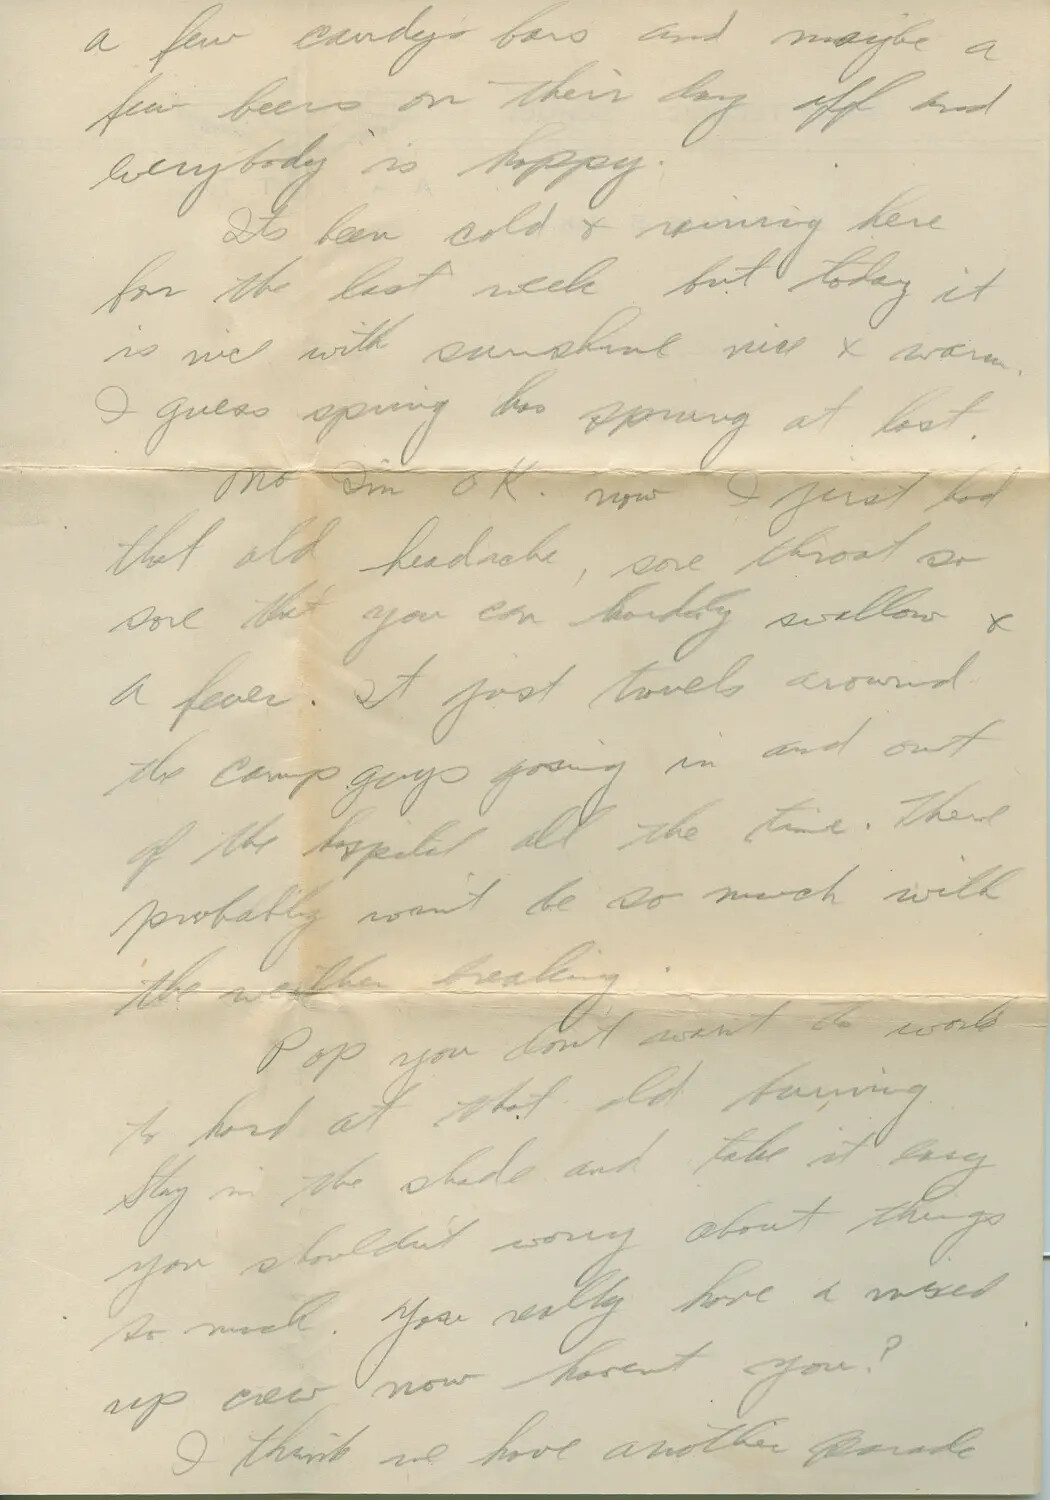 a few candys bars and maybe a
few beers on their day off and
everybody is happy.
Its been cold & raining here
for the last week but today it
is nice with sunshine nice & warm.
I guess spring has sprung at last.
Mo I'm OK. now I just had
that old headache, sore throat so
sore that you can hardly swallow &
a fever. It just travels around
the camp guys going in and out
of the hospital all the time. There
probably won't be so much with
the weather breaking.
Pop you don't want to work
to hard at that old
Stay in the shade and take it easy
you shouldn't worry about things
so much. You really have a mixed
up crew now havent you?
I think we have another parade